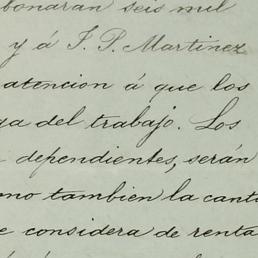 bonaran seis mil
y á J. P. Martinez
atencion á que los
ga del trabajo. Los
dependientes, serán
omo tambien la canti
e considera de renta